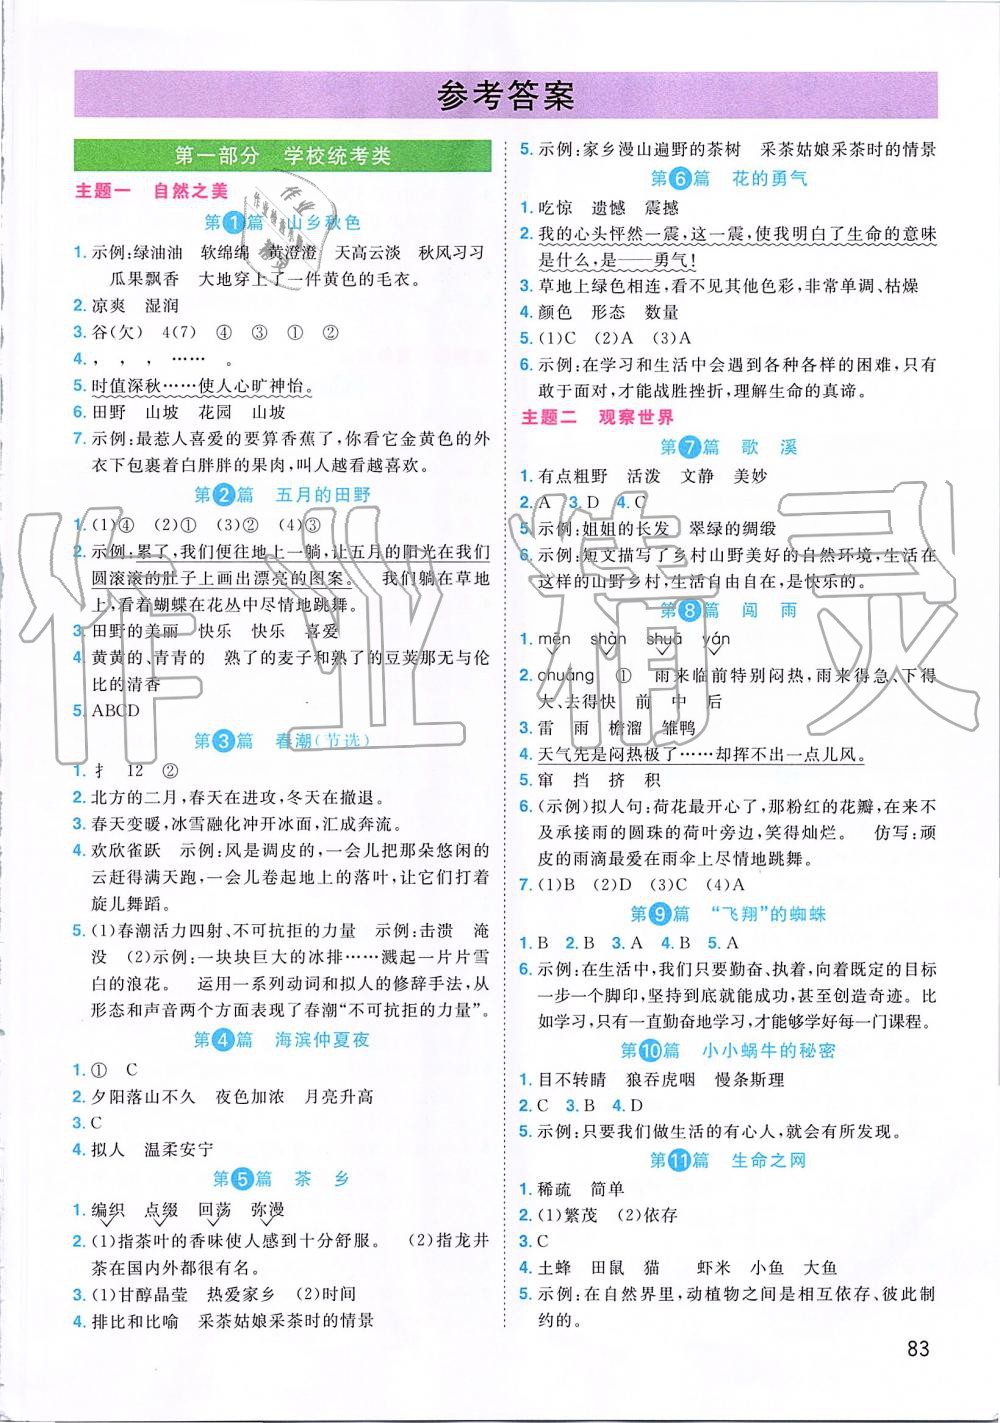 参考答案
第一部分　学校统考类
主题一　自然之美
第1篇　山乡秋色
1. 示例:绿油油　软绵绵　黄澄澄　天高云淡　秋风习习
瓜果飘香　大地穿上了一件黄色的毛衣。
2. 凉爽　湿润
3. 谷(欠)　4(7)　④　③　①　②
4. ，　，　，　……　。
5. 时值深秋……使人心旷神怡。
6. 田野　山坡　花园　山坡
7. 示例:最惹人喜爱的要算香蕉了,你看它金黄色的外
衣下包裹着白胖胖的果肉,叫人越看越喜欢。
第2篇　五月的田野
1. (1)④　(2)①　(3)②　(4)③
2. 示例:累了,我们便往地上一躺,让五月的阳光在我们
圆滚滚的肚子上画出漂亮的图案。　我们躺在草地
上,看着蝴蝶在花丛中尽情地跳舞。
3. 田野的美丽　快乐　快乐　喜爱
4. 黄黄的、青青的　熟了的麦子和熟了的豆荚那无与伦
比的清香
5. ABCD
第3篇　春潮(节选)
1. 扌　12　②
2. 北方的二月,春天在进攻,冬天在撤退。
3. 春天变暖,冰雪融化冲开冰面,汇成奔流。
4. 欢欣雀跃　示例:风是调皮的,一会儿把那朵悠闲的
云赶得满天跑,一会儿卷起地上的落叶,让它们打着
旋儿舞蹈。
5. (1)春潮活力四射、不可抗拒的力量　示例:击溃　淹
没　(2)示例:一块块巨大的冰排……溅起一片片雪
白的浪花。　运用一系列动词和拟人的修辞手法,从
形态和声音两个方面表现了春潮“不可抗拒的力量”。
第4篇　海滨仲夏夜
1. ①　C
2. 夕阳落山不久　夜色加浓　月亮升高
3. C
4. 拟人　温柔安宁
第5篇　茶　乡
1. 编织　点缀　回荡　弥漫
2. (1)指茶叶的香味使人感到十分舒服。　(2)指龙井
茶在国内外都很有名。
3. (1)甘醇晶莹　热爱家乡　(2)时间
4. 排比和比喻　采茶姑娘采茶时的情景
5. 示例:家乡漫山遍野的茶树　采茶姑娘采茶时的情景
第6篇　花的勇气
1. 吃惊　遗憾　震撼
2. 我的心头怦然一震,这一震,使我明白了生命的意味
是什么,是——勇气!
3. 草地上绿色相连,看不见其他色彩,非常单调、枯燥
4. 颜色　形态　数量
5. (1)C　(2)A　(3)A
6. 示例:在学习和生活中会遇到各种各样的困难,只有
敢于面对,才能战胜挫折,理解生命的真谛。
主题二　观察世界
第7篇　歌　溪
1. 有点粗野　活泼　文静　美妙
2. A　3. D　4. C
5. 示例:姐姐的长发　翠绿的绸缎
6. 示例:短文描写了乡村山野美好的自然环境,生活在
这样的山野乡村,生活自由自在,是快乐的。
第8篇　闯　雨
1. mēn　shàn　shuā　yán
2. chuáng　①　雨来临前特别闷热,雨来得急、下得
大、去得快　前　中　后
3. 雷　雨　檐溜　雏鸭
4. 天气先是闷热极了……却挥不出一点儿风。
5. 窜　挡　挤　积
6. (示例)拟人句:荷花最开心了,那粉红的花瓣,在来不
及承接雨的圆珠的荷叶旁边,笑得灿烂。　仿写:顽
皮的雨滴最爱在雨伞上尽情地跳舞。
7. (1)B　(2)D　(3)C　(4)A
第9篇　“飞翔”的蜘蛛
1. B　2. B　3. A　4. B　5. A
6. 示例:在生活中,我们只要勤奋、执着,向着既定的目标
一步一个脚印,坚持到底就能成功,甚至创造奇迹。比
如学习,只有一直勤奋地学习,才能够学好每一门课程。
第10篇　小小蜗牛的秘密
1. 目不转睛　狼吞虎咽　慢条斯理
2. C　3. B　4. D
5. 示例:只要我们做生活的有心人,就会有所发现。
第11篇　生命之网
1. 稀疏　简单
2. (1)繁茂　(2)依存
3. C
4. 土蜂　田鼠　猫　　虾米　小鱼　大鱼
5. 示例:在自然界里,动植物之间是相互依存、彼此制
约的。
83
作业精灵